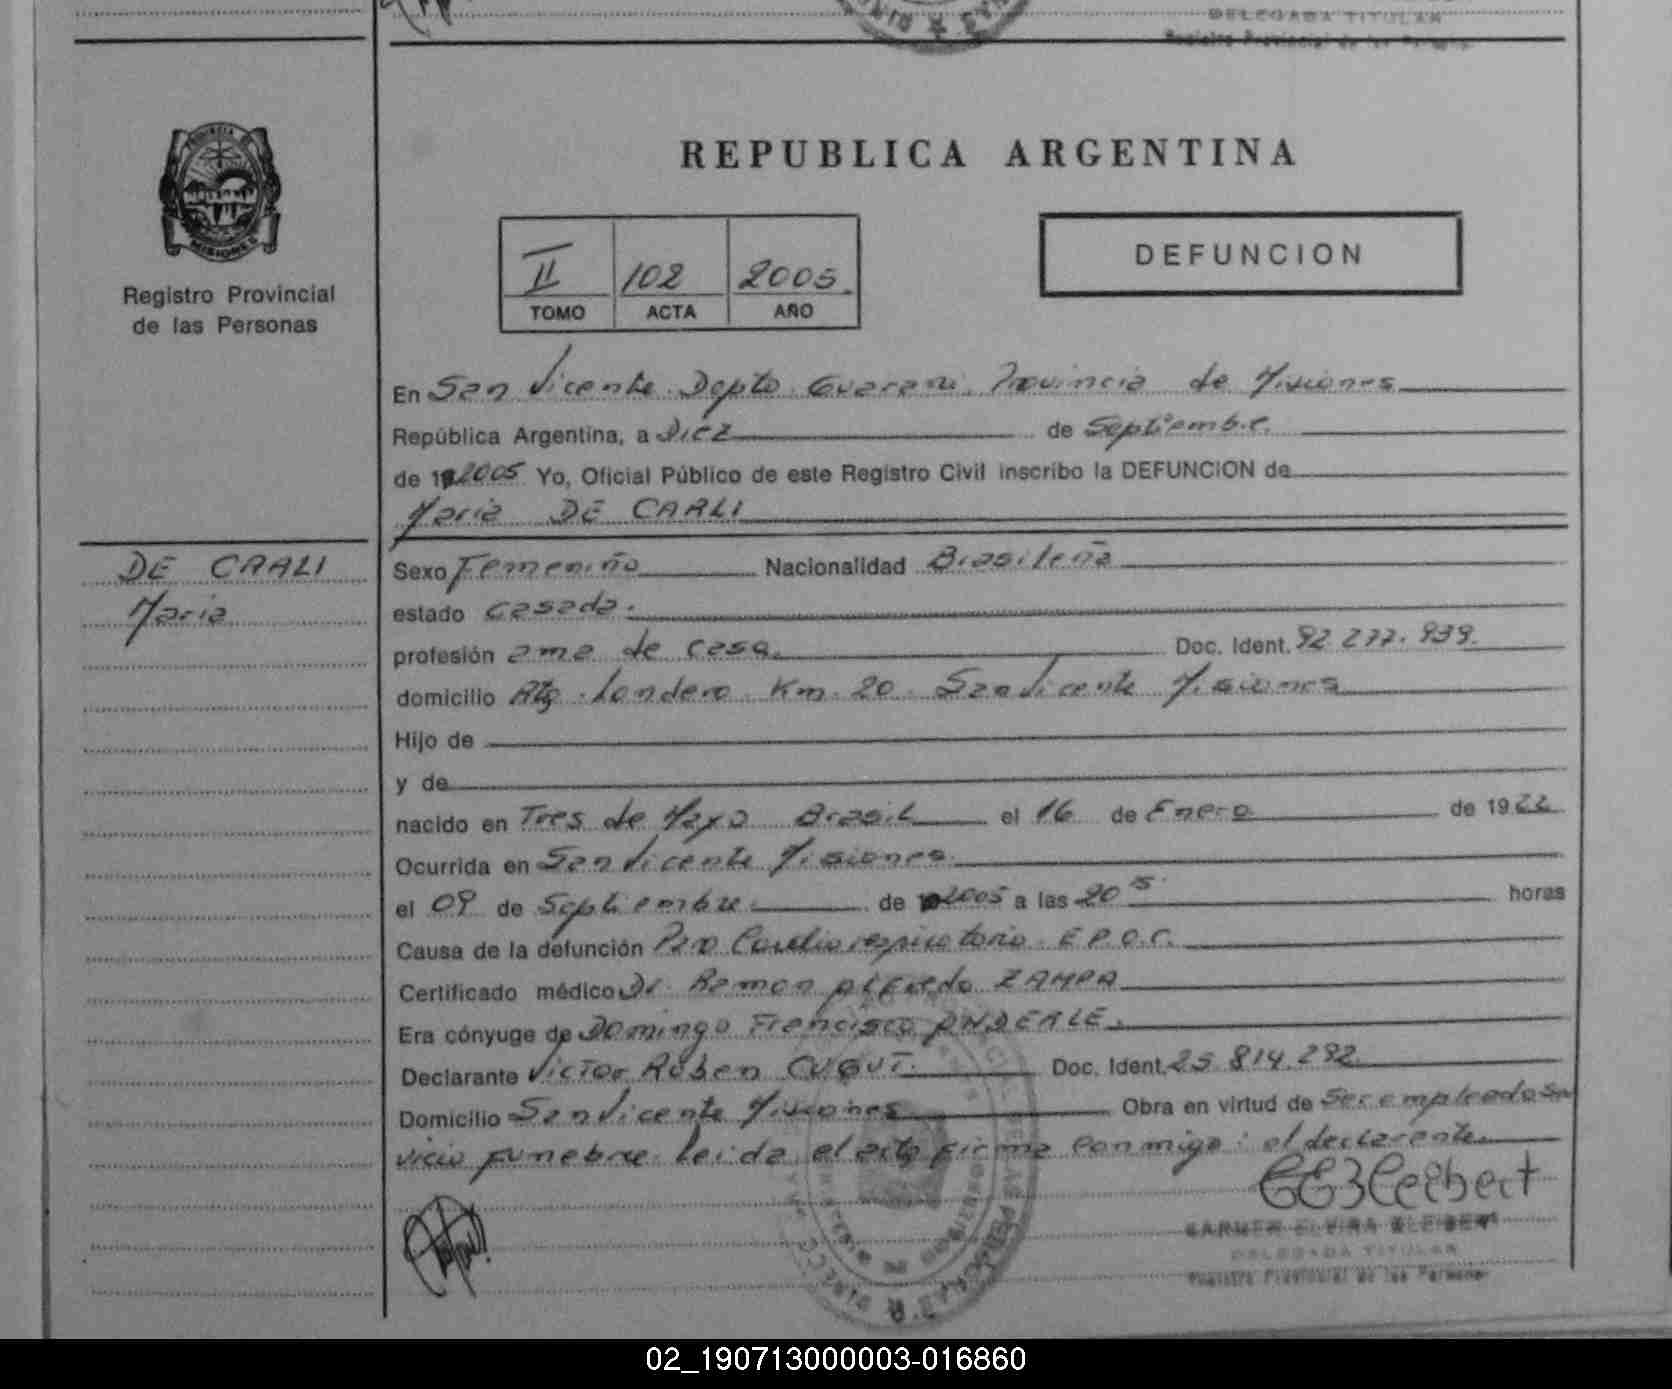 DELEGADA TITULAR
Registro Provincial de las Personas
PROVINCIA DE
MISIONES
Registro Provincial
de las Personas
REPUBLICA ARGENTINA
II 102 2005.
TOMO ACTA AÑO
DEFUNCION
En San Vicente Depto Guarani, Provincia de Misiones
República Argentina, a Diez de Septiembre
de 19 2005 Yo, Oficial Público de este Registro Civil inscribo la DEFUNCION de
Maria DE CARLI
DE CRALI
Maria
Sexo Femenino Nacionalidad Brasileña
estado Casada.
profesión ama de casa. Doc. Ident. 92 277.939.
domicilio Rta. Londero Km. 20. San Vicente Misiones
Hijo de
y de
nacido en Tres de Mayo Brasil el 16 de Enero de 1922
Ocurrida en San Vicente Misiones
el 09 de Septiembre de 2005 a las 20 15 horas
Causa de la defunción Paro Cardiorespiratorio E.P.O.C.
Certificado médico Dr. Ramon Alfredo ZAMPA
Era cónyuge de Domingo Francisco ANDERLE.
Declarante Victor Ruben CUQUI. Doc. Ident. 25.814.292
Domicilio San Vicente Misiones Obra en virtud de Ser empleado Ser
vicio funebre. Leida el acta firma conmigo: el declarante
CARMEN ELVIRA
DELEGADA TITULAR
Registro Provincial de las Personas
02_190713000003-016860